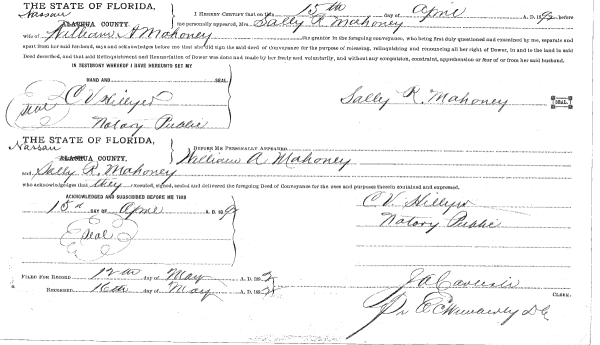 THE STATE OF FLORIDA,
Nassau
ALACHUA COUNTY.
I HEREBY CERTIFY that on this 15th day of April A. D. 189 before
me personally appeared, Mrs. Sally R. Mahoney
wife of William A Mahoney the grantor in the foregoing conveyance, who being first duly questioned and examined by me, separate and
apart from her said husband, says and acknowledges before me that she did sign the said deed of Conveyance for the purpose of releasing, relinquishing and renouncing all her right of Dower, in and to the land in said
Deed described, and that said Relinquishment and Renunciation of Dower was done and made by her freely and voluntarily, and without any compulsion, constraint, apprehension or fear of or from her said husband.
IN TESTIMONY WHEREOF I HAVE HEREUNTO SET MY
HAND AND SEAL
Seal
C V Hillyer
Notary Public
Sally R. Mahoney SEAL.
THE STATE OF FLORIDA,
Nassau
ALACHUA COUNTY,
BEFORE ME PERSONALLY APPEARED
William A Mahoney
and Sally R. Mahoney
who acknowledges that they executed, signed, sealed and delivered the foregoing Deed of Conveyance for the uses and purposes therein contained and expressed.
ACKNOWLEDGED AND SUBSCRIBED BEFORE ME THIS
15th DAY OF April A. D. 189
Seal
C. V. Hillyer
Notary Public
FILED FOR RECORD 12th day of May A. D. 189
RECORDED 16th day of May A. D. 189
J A
CLERK.
Pr E C D C